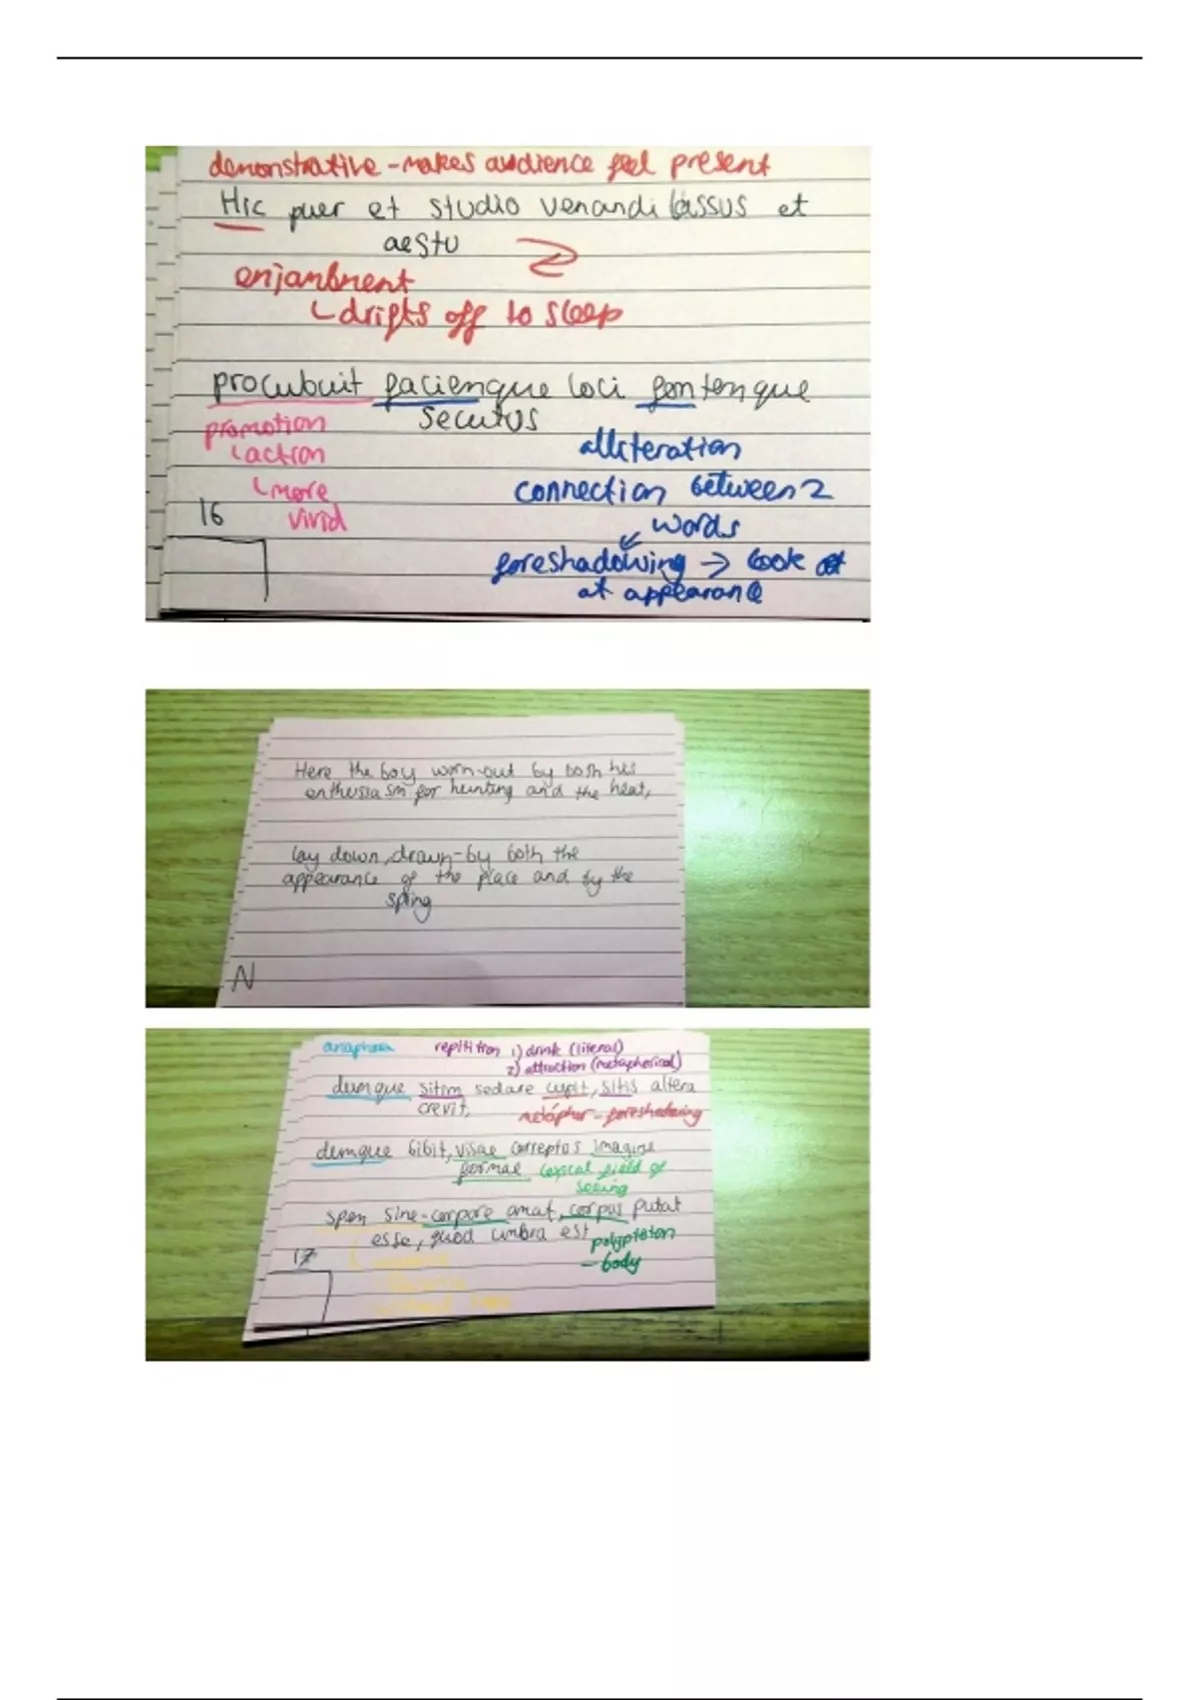 demonstrative - makes audience feel present
Hic puer et studio venandi lassus et
aestu
enjambment
↳ drifts off to sleep
procubuit faciemque loci fontemque
secutus
promotion
↳ action
↳ more
vivid
alliteration
connection between 2
words
foreshadowing → look at
at appearance
16
Here the boy worn-out by both his
enthusiasm for hunting and the heat,
lay down, drawn-by both the
appearance of the place and by the
spring
N
anaphora repitition 1) drink (literal)
2) attraction (metaphorical)
dumque sitim sedare cupit, sitis altera
crevit,
metaphor - foreshadowing
dumque bibit, visae correptus imagine
formae lexical field of
seeing
spem sine-corpore amat, corpus putat
esse, quod umbra est
polyptoton
- body
17